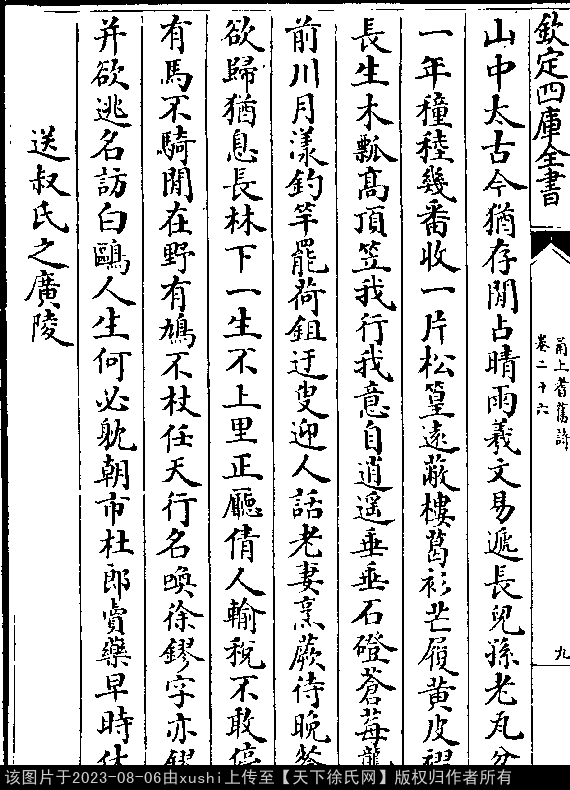 欽定四庫全書
甬上耆舊詩
卷二十六
九
山中太古今猶存閒占晴雨羲文易遞長兒孫老瓦盆
一年穜稑幾番收一片松篁遠蔽樓葛衫芒屨黄皮褶
長生木瓢髙頂笠我行我意自逍遥垂垂石磴蒼莓龍
前川月漾釣竿罷荷鉏迂叟迎人話老妻烹蕨待晚餐
欲歸猶息長林下一生不上里正廳倩人輸稅不敢停
有馬不騎閒在野有鳩不杖任天行名喚徐鏐字亦鏐
并欲逃名訪白鷗人生何必躭朝市杜郎賣藥早時休
送叔氏之廣陵
该图片于2023-08-06由xushi上传至【天下徐氏网】版权归作者所有